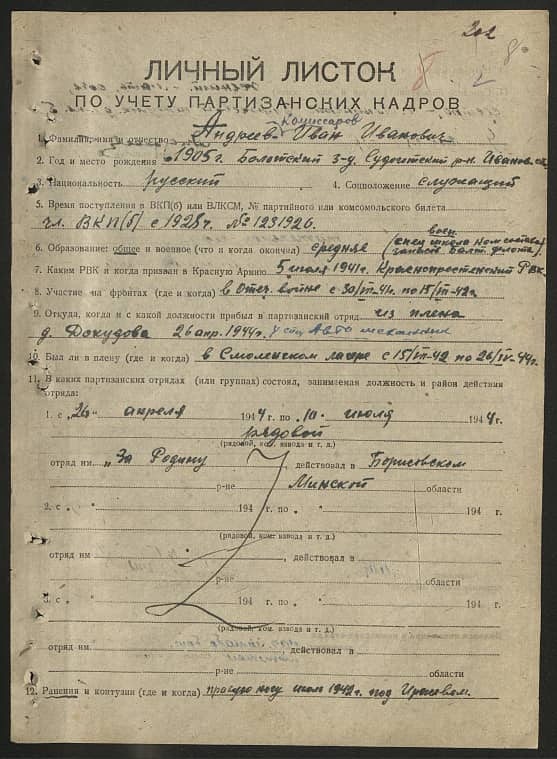 202
8
ЛИЧНЫЙ ЛИСТОК
ПО УЧЕТУ ПАРТИЗАНСКИХ КАДРОВ
Комиссаров
1. Фамилия, имя и отчество Андреев Иван Иванович
2. Год и место рождения 1905 г. Болотский з-д. Судоготский р-н. Иванов.
3. Национальность русский 4. Соцположение служащий
5. Время поступления в ВКП(б) или ВЛКСМ, № партийного или комсомольского билета
чл. ВКП(б) с 1928 г. № 1231926.
воен
6. Образование: общее и военное (что и когда окончил) средняя (спец школа Комсостава
запаса Балт. флота)
7. Каким РВК и когда призван в Красную Армию 5 июля 1941 г. Краснопресненский РВК
8. Участие на фронтах (где и когда) в Отеч. войне с 30/VII-41г. по 15/III-42г.
9. Откуда, когда и с какой должности прибыл в партизанский отряд из плена
д. Докудова 26 апр. 1944 г. Автомеханик
10. Был ли в плену (где и когда) в Смоленском лагере с 15/III-42 по 26/IV-44г.
11. В каких партизанских отрядах (или группах) состоял, занимаемая должность и район действия
отряда:
1. с „26“ апреля 1944 г. по „10“ июля 1944 г.
рядовой
(рядовой, ком. взвода и т. д.)
отряд им. „За Родину“, действовал в Борисовском
р-не Минской области
2. с „ 194 г. по „ 194 г.
(рядовой, ком. взвода и т. д.)
отряд им , действовал в
р-не области
3. с „ 194 г. по „ 194 г.
(рядовой, ком. взвода и т. д.)
отряд им. , действовал в
р-не области
12. Ранения и контузии (где и когда) правую ногу 1942 г. под